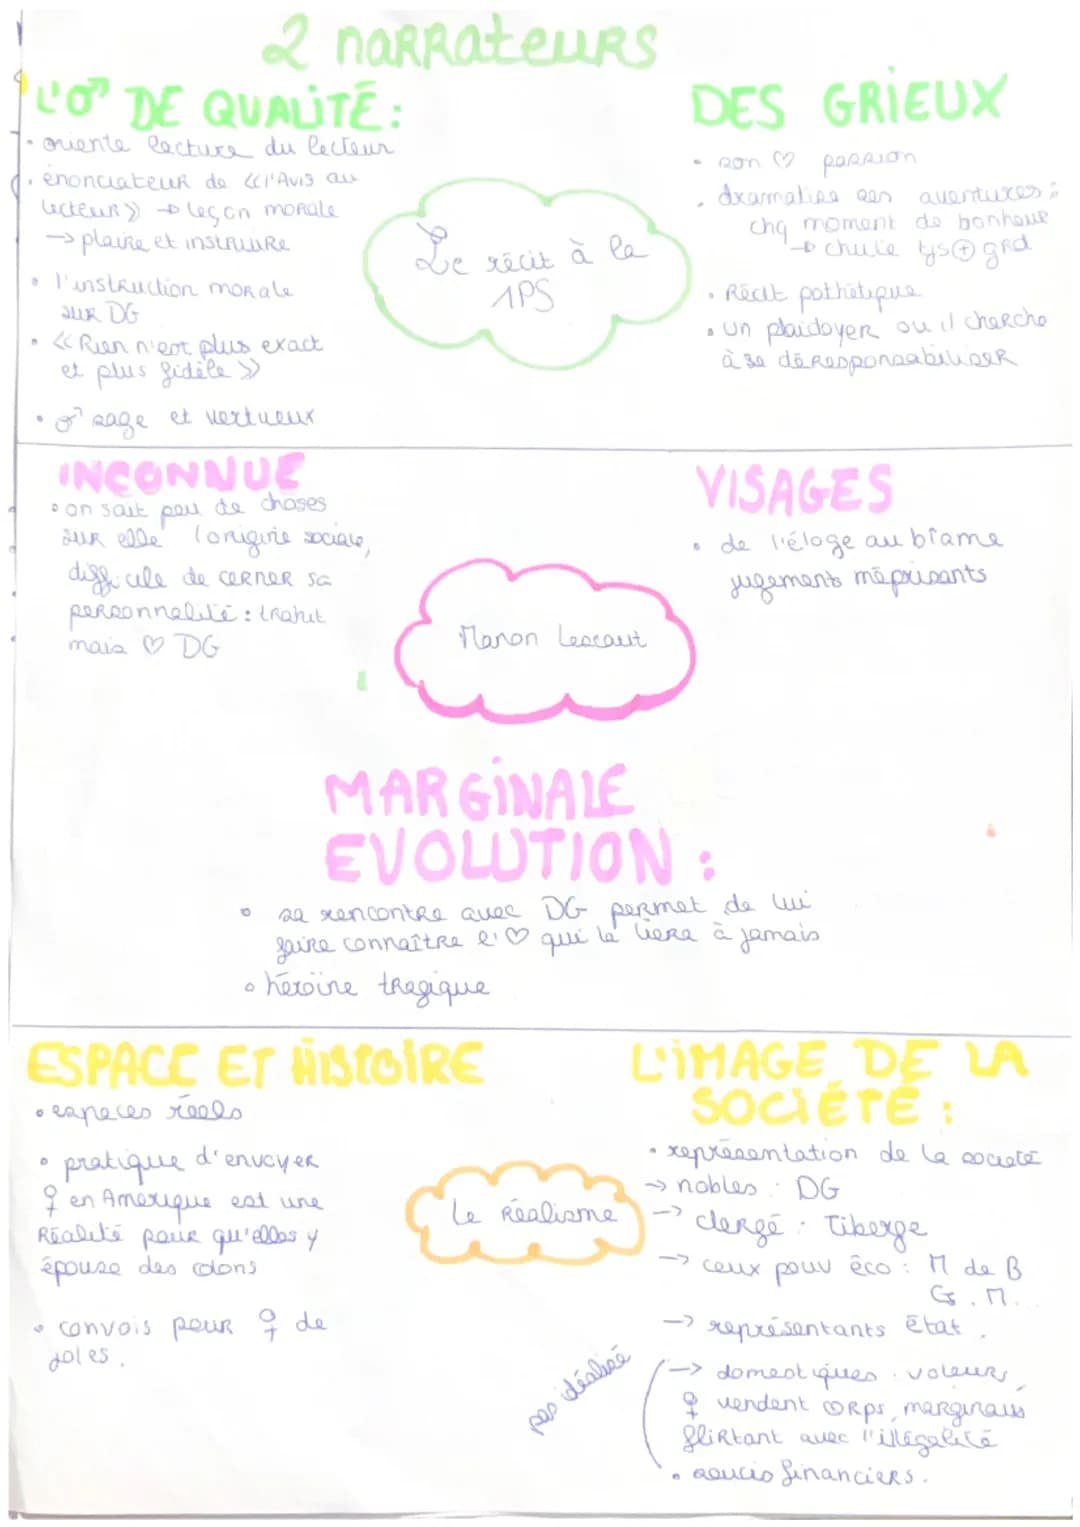 2 narrateurs
L'♂ DE QUALITÉ :
• oriente lecture du lecteur
• énonciateur de «l'Avis au
lecteur» → leçon morale
→ plaire et instruire
• l'instruction morale
sur DG
• « Rien n'est plus exact
et plus fidèle »
• ♂ sage et vertueux
Le récit à la
1PS
DES GRIEUX
• son ♡ passion
• dramatise ses aventures :
chq moment de bonheur
→ chute tjs ⊕ grd
• Récit pathétique
• un plaidoyer ou il cherche
à se déresponsabiliser
INCONNUE
• on sait peu de choses
sur elle (origine sociale,
difficile de cerner sa
personnalité : trahit
mais ♡ DG
Manon Lescaut
VISAGES
• de l'éloge au blâme
jugements méprisants
MARGINALE
EVOLUTION :
• sa rencontre avec DG permet de lui
faire connaître l'♡ qui la liera à jamais
• héroïne tragique
ESPACE ET HISTOIRE
• espaces réels
• pratique d'envoyer
♀ en Amérique est une
Réalité pour qu'elles y
épouse des colons
• convois pour ♀ de
joies.
Le Réalisme
L'IMAGE DE LA
SOCIÉTÉ :
• représentation de la societé
→ nobles : DG
→ clergé : Tiberge
→ ceux pouv éco : M de B
G. M.
→ représentants état.
pas idéalisé
→ domestiques. voleurs,
♀ vendent corps, marginaux
flirtant avec l'illégalité
• soucis financiers.